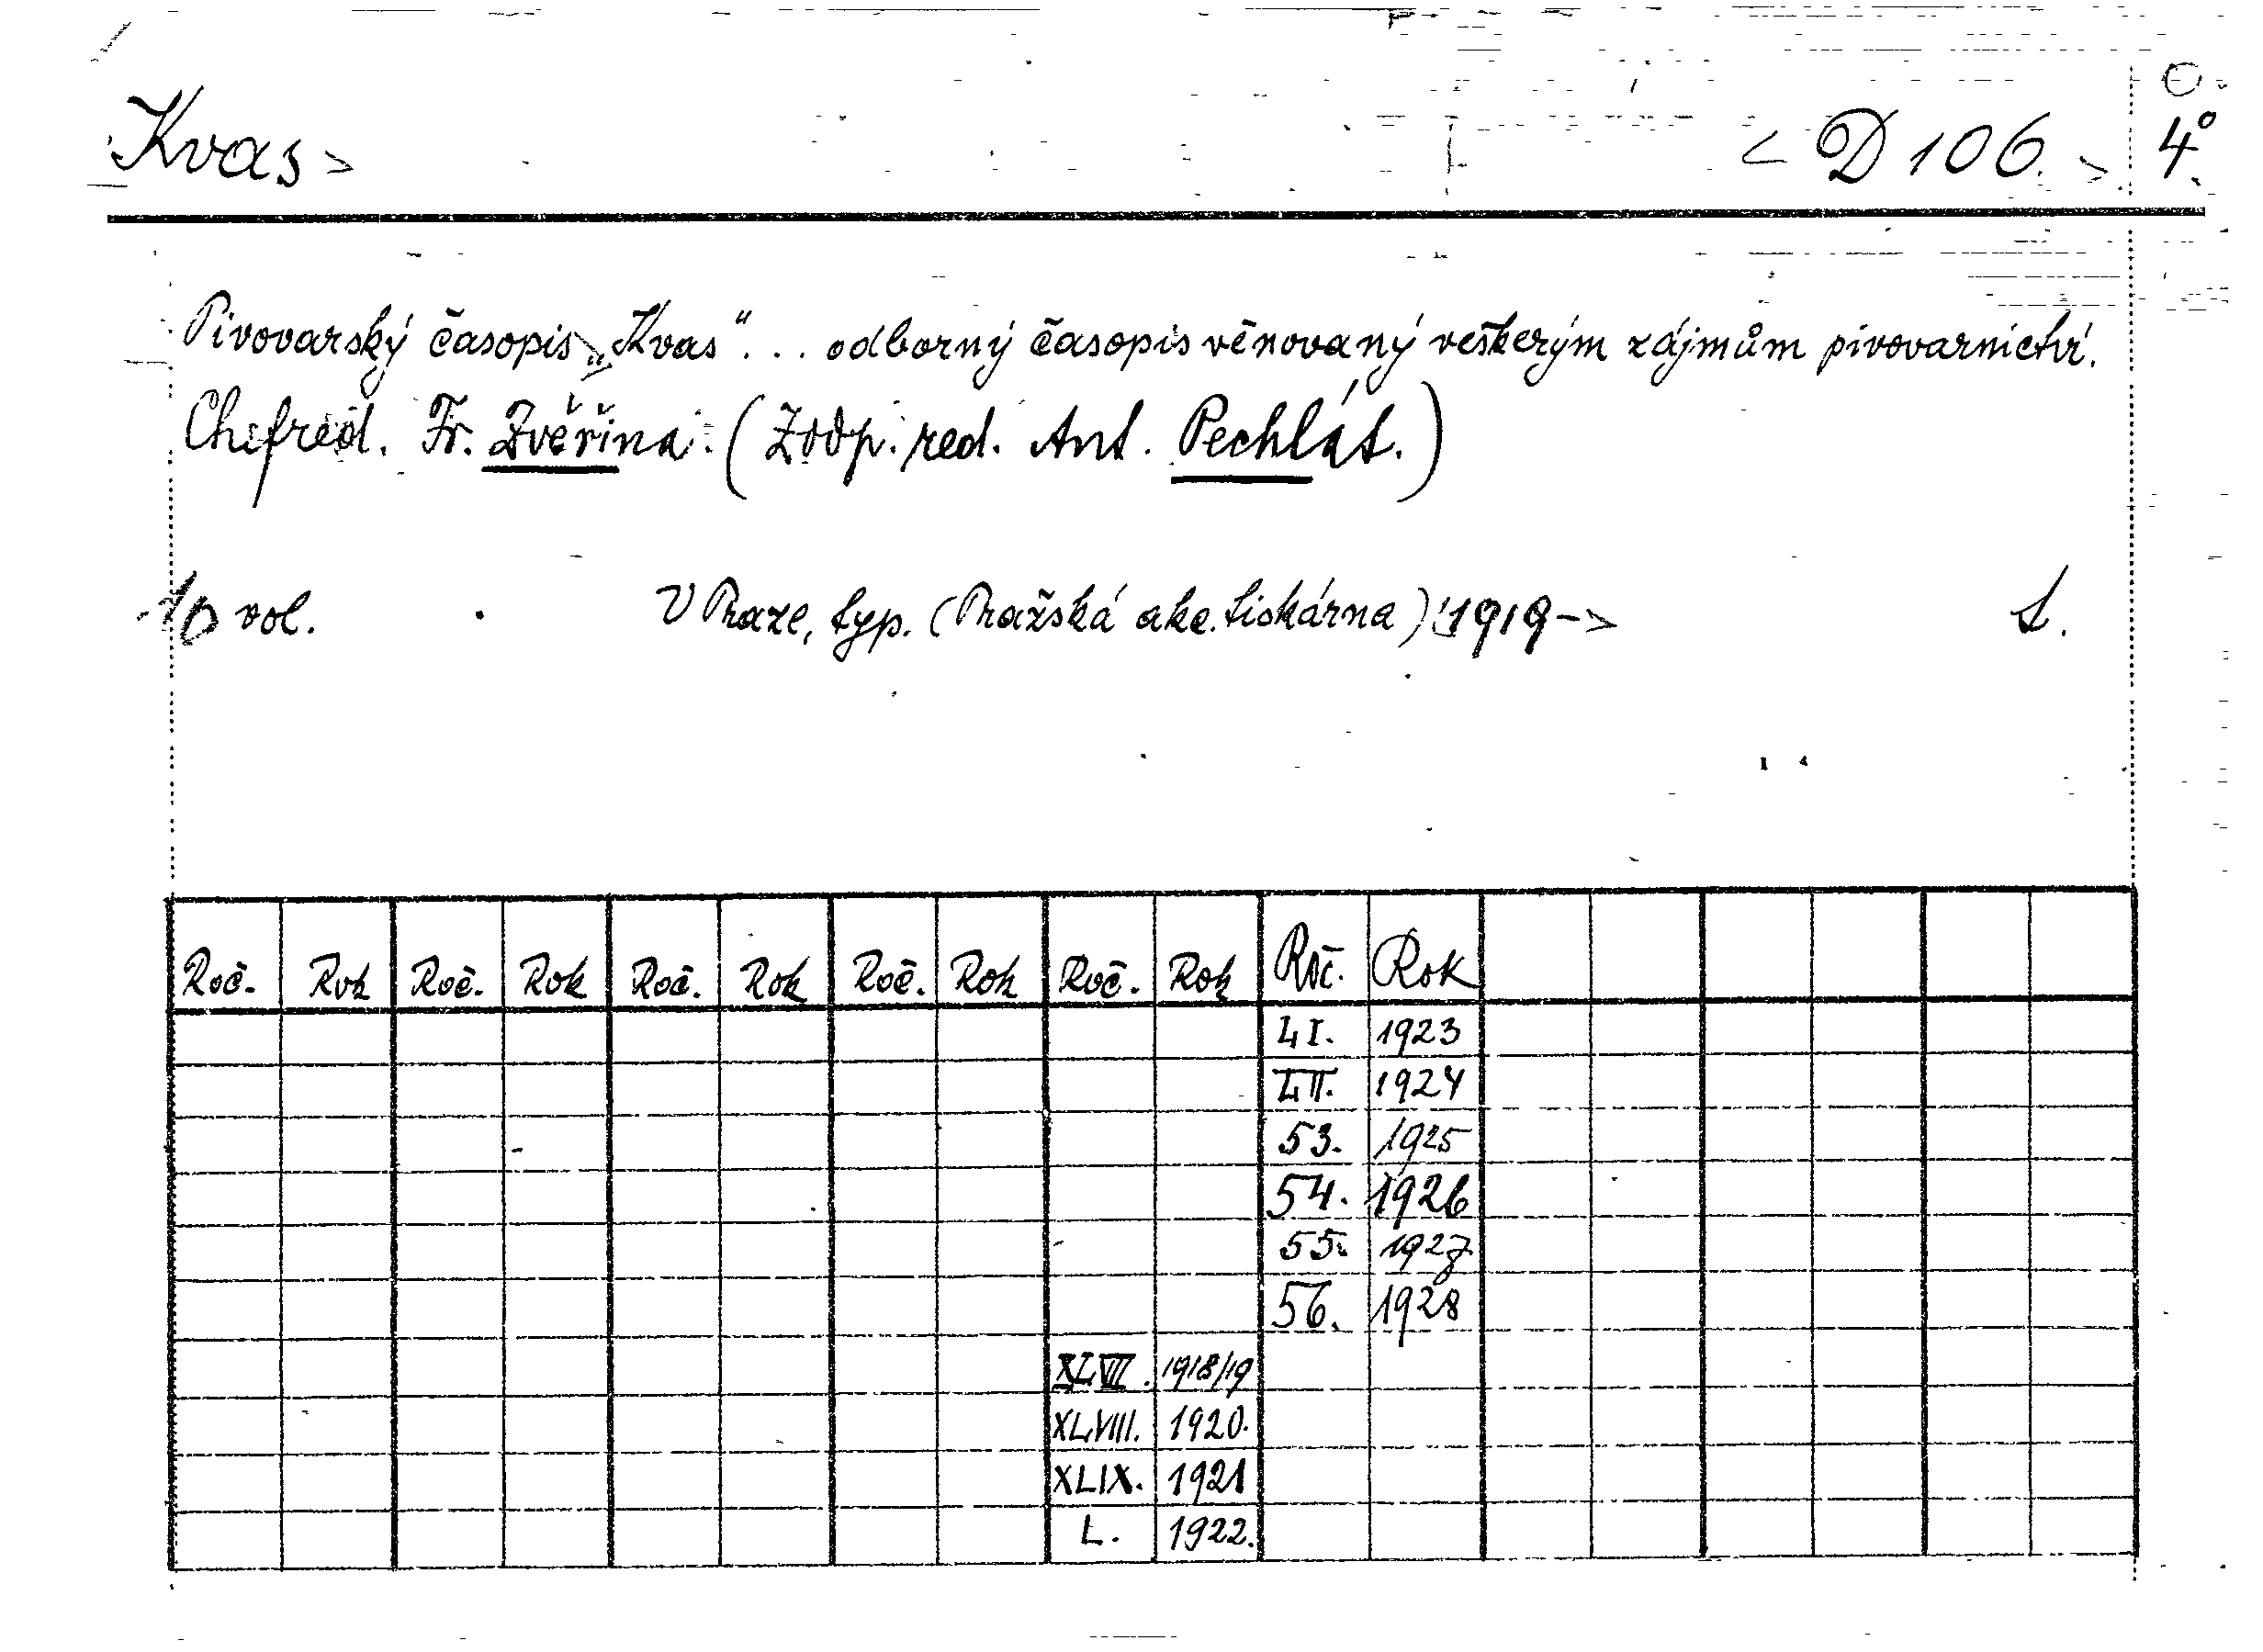 Kvas > < D 106. > 4°.
Pivovarský časopis „Kvas“... odborný časopis věnovaný veškerým zájmům pivovarnictví.
Chefred. Fr. Zvěřina. (Zodp. red. Ant. Pechlát.)
10 vol. V Praze, typ. (Pražská akc. tiskárna) 1919->
Roč. Rok Roč. Rok Roč. Rok Roč. Rok Roč. Rok Roč. Rok
LI. 1923
LII. 1924
53. 1925
54. 1926
55. 1927
56. 1928
XLVII. 1918/19
XLVIII. 1920.
XLIX. 1921
L. 1922.